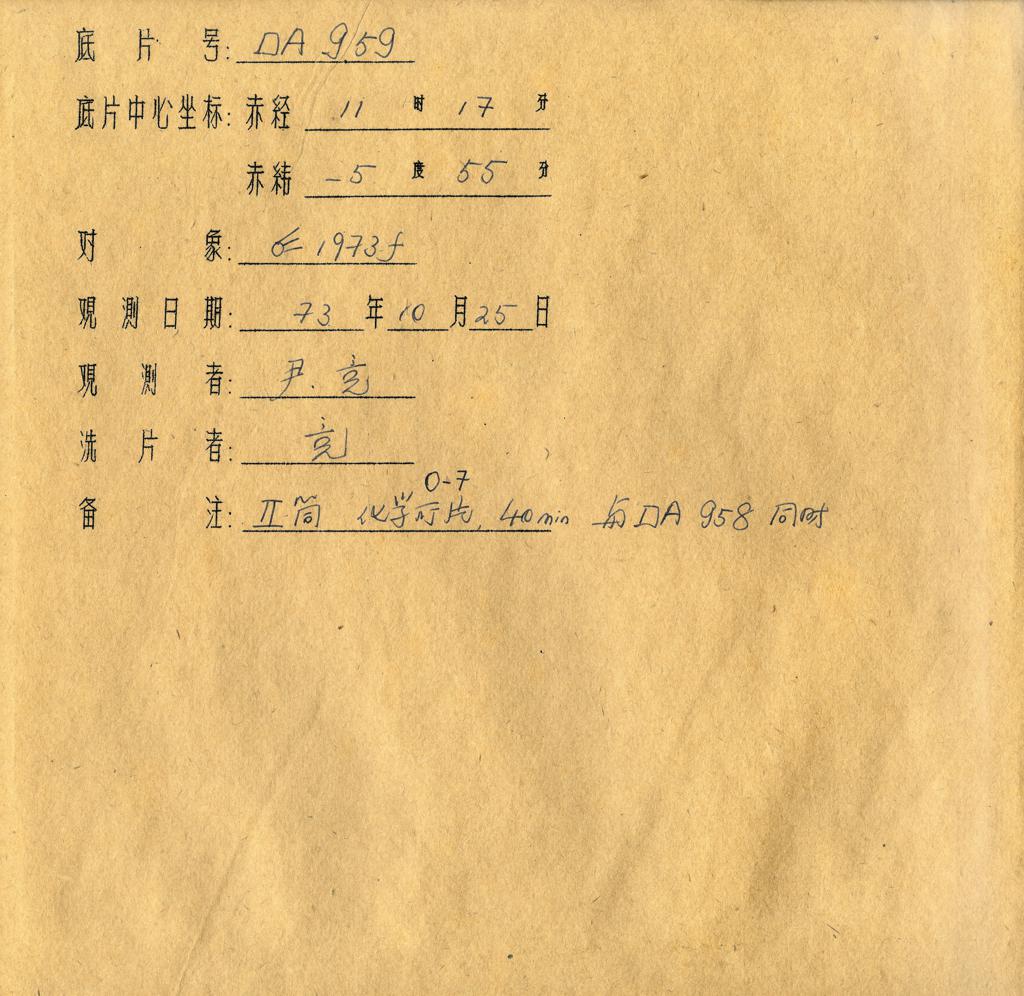 底片号: DA 959
底片中心坐标: 赤经 11 时 17 分
赤纬 -5 度 55 分
对象: 1973f
观测日期: 73 年 10 月 25 日
观测者: 尹.亮
洗片者: 亮
O-7
备注: II筒 化学所片, 40min 与DA 958 同时